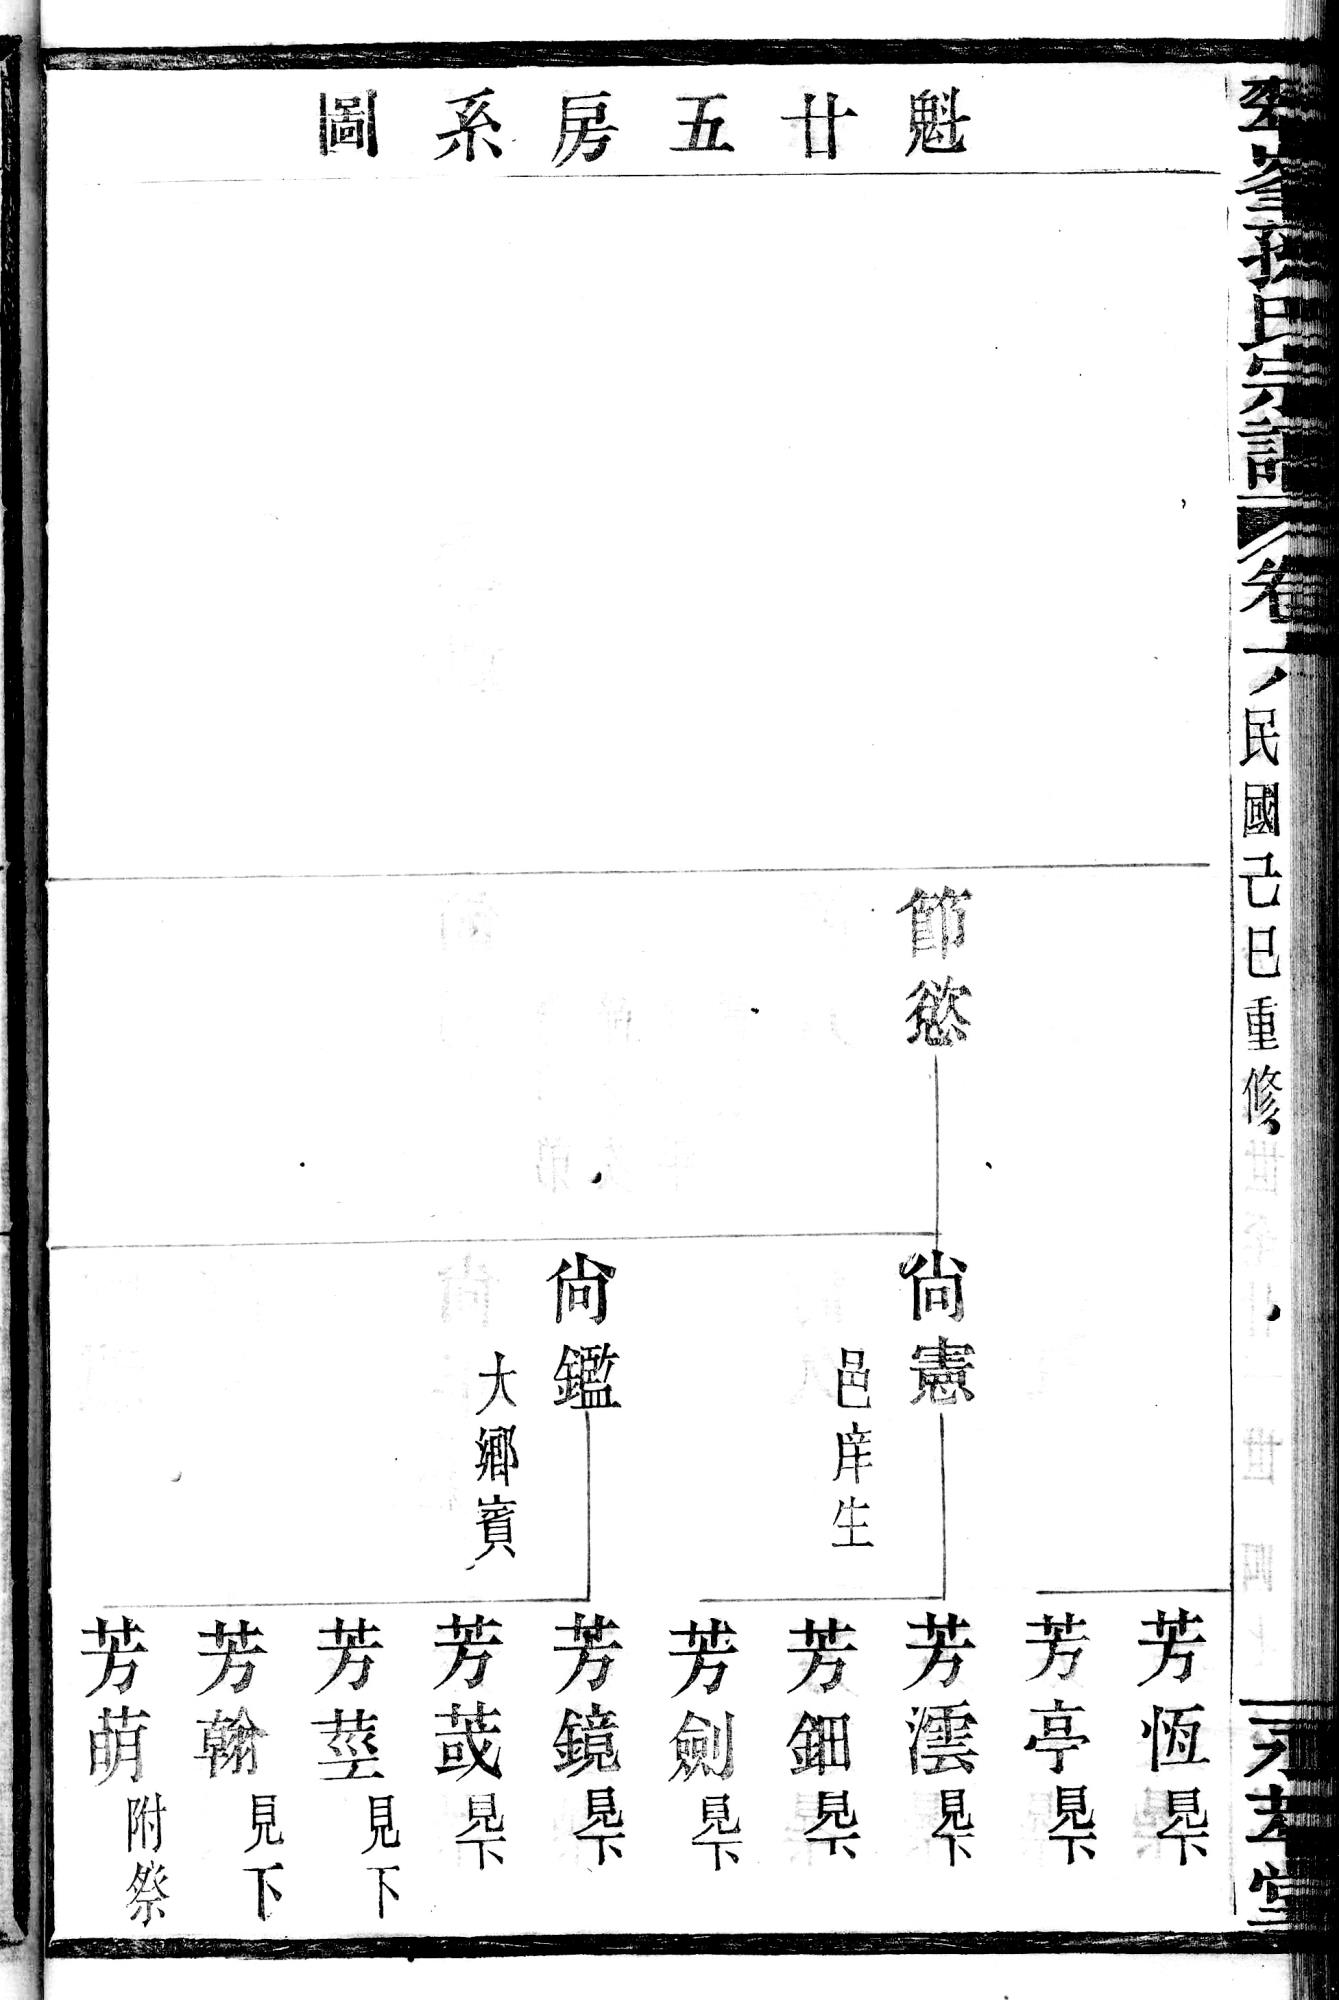 氏宗譜
民國己巳重修
魁廿五房系圖
節慾
尙憲
邑庠生
尙鑑
大鄉賓
芳恆 見下
芳亭 見下
芳澐 見下
芳鈿 見下
芳劍 見下
芳鏡 見下
芳莪 見下
芳莖 見下
芳翰 見下
芳萌 附祭